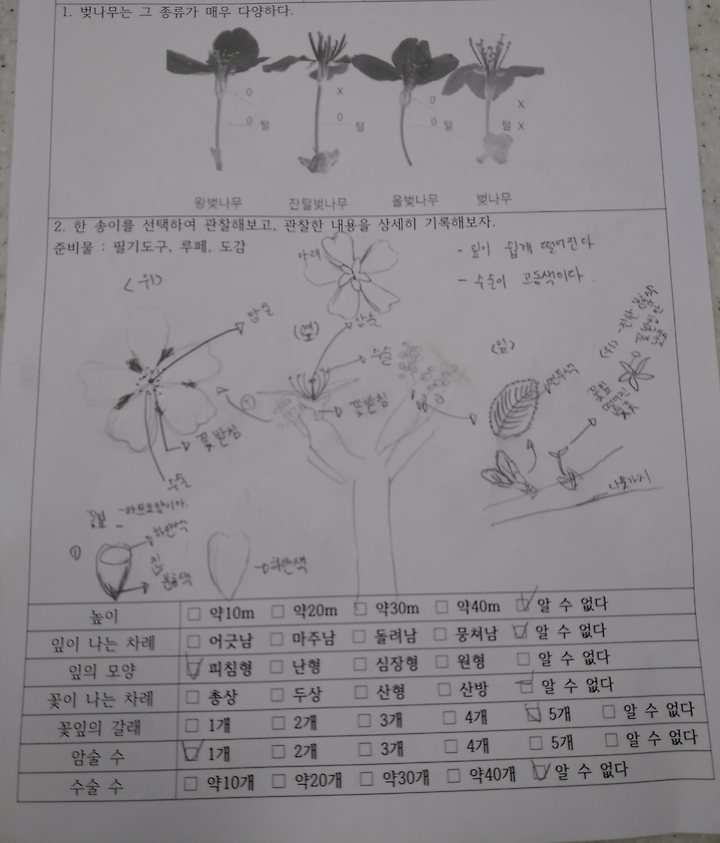 1. 벚나무는 그 종류가 매우 다양하다.
O X O X
O 털 O 털 O 털 털 X
왕벚나무 잔털벚나무 올벚나무 벚나무
2. 한 송이를 선택하여 관찰해보고, 관찰한 내용을 상세히 기록해보자.
준비물 : 필기도구, 루페, 도감
- 잎이 쉽게 떨어진다
- 수술이 고동색이다.
아래
<위>
암술
꽃받침
수술
(옆)
암술
수술
꽃받침
(잎)
연두색
나뭇가지
- 하트모양이다.
하얀색
분홍색
하얀색
높이 □ 약10m □ 약20m □ 약30m □ 약40m ☑ 알 수 없다
잎이 나는 차례 □ 어긋남 □ 마주남 □ 돌려남 □ 뭉쳐남 ☑ 알 수 없다
잎의 모양 ☑ 피침형 □ 난형 □ 심장형 □ 원형 □ 알 수 없다
꽃이 나는 차례 □ 총상 □ 두상 □ 산형 □ 산방 ☑ 알 수 없다
꽃잎의 갈래 □ 1개 □ 2개 □ 3개 □ 4개 ☑ 5개 □ 알 수 없다
암술 수 ☑ 1개 □ 2개 □ 3개 □ 4개 □ 5개 □ 알 수 없다
수술 수 □ 약10개 □ 약20개 □ 약30개 □ 약40개 ☑ 알 수 없다